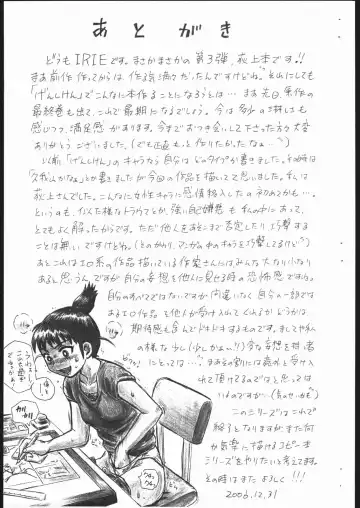 あとがき
どうもIRIEです。まさかまさかの第3弾、荻上本です!!
まあ前作作ってからは、作る気満々だったんですけどね。それにしても
「げんしけん」でこんなに本作ることになろうとは…まあ先日、原作の
最終巻も出て、これで最期になるでしょう。今は多少の淋しさも
感じつつ、満足感があります。今までおつき合いして下さった方々大変
ありがとうございました。(でも正直もっと作りたかったなぁ〜)
以前、「げんしけん」のキャラなら自分はどのタイプか書きました。その時は
「久我山かなぁ」とか書きましたが今回の作品を描いてて思いました。私は
荻上さんでした。こんなに女性キャラに感情移入したの初めてかも…。
というのも、似た様なトラウマとか、強い自己嫌悪も私の中にあって、
とてもよく解ったからです。ただ他人をあそこまで否定したり攻撃する
ことは無いですけどね。
あとこれはエロ系の作品描いている作家さんにはみんな大なり小なり
あると思うんですが自分の妄想を他人に見せる時の恐怖感ですかね。
自分のすべてではないですが間違いなく自分の一部では
あるエロ作品を他人が受け入れてくれるかどうかは、
期待感も含んでドキドキするものです。ましてや私
の様な少し(少しかぁ〜!?)歪な妄想を持つ者
にとっては…。まあその割には意外と受け入
れて頂けてるのではと思っては
いるのですが…(気のせいかも)
このシリーズはこれで
終りとなりますがまた何
か気楽に描けるコピー本
シリーズをやりたいと考えてます。
その時はまたよろしく!!!
2006.12.31